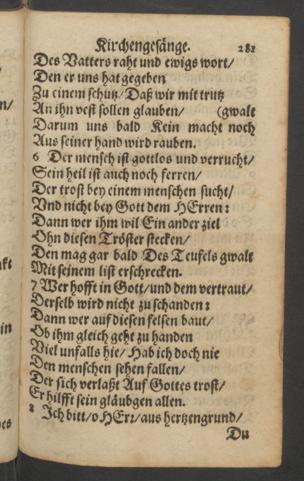 Kirchengesänge. 281
Des Vatters raht und ewigs wort/
Den er uns hat gegeben
Zu einem schutz/ Daß wir mit trutz
An ihn vest sollen glauben/ (gwalt
Darum uns bald Kein macht noch
Aus seiner hand wird rauben.
6 Der mensch ist gottlos und verrucht/
Sein heil ist auch noch ferren/
Der trost bey einem menschen sucht/
Vnd nicht bey Gott dem HErren:
Dann wer ihm wil Ein ander ziel
Ohn diesen Tröster stecken/
Den mag gar bald Des Teufels gwalt
Mit seinem list erschrecken.
7 Wer hofft in Gott/ und dem vertraut/
Derselb wird nicht zu schanden:
Dann wer auf diesen felsen baut/
Ob ihm gleich geht zu handen
Viel unfalls hie/ Hab ich doch nie
Den menschen sehen fallen/
Der sich verlaßt Auf Gottes trost/
Er hilfft sein gläubgen allen.
8 Ich bitt/ o HErr/ aus hertzengrund/
Du